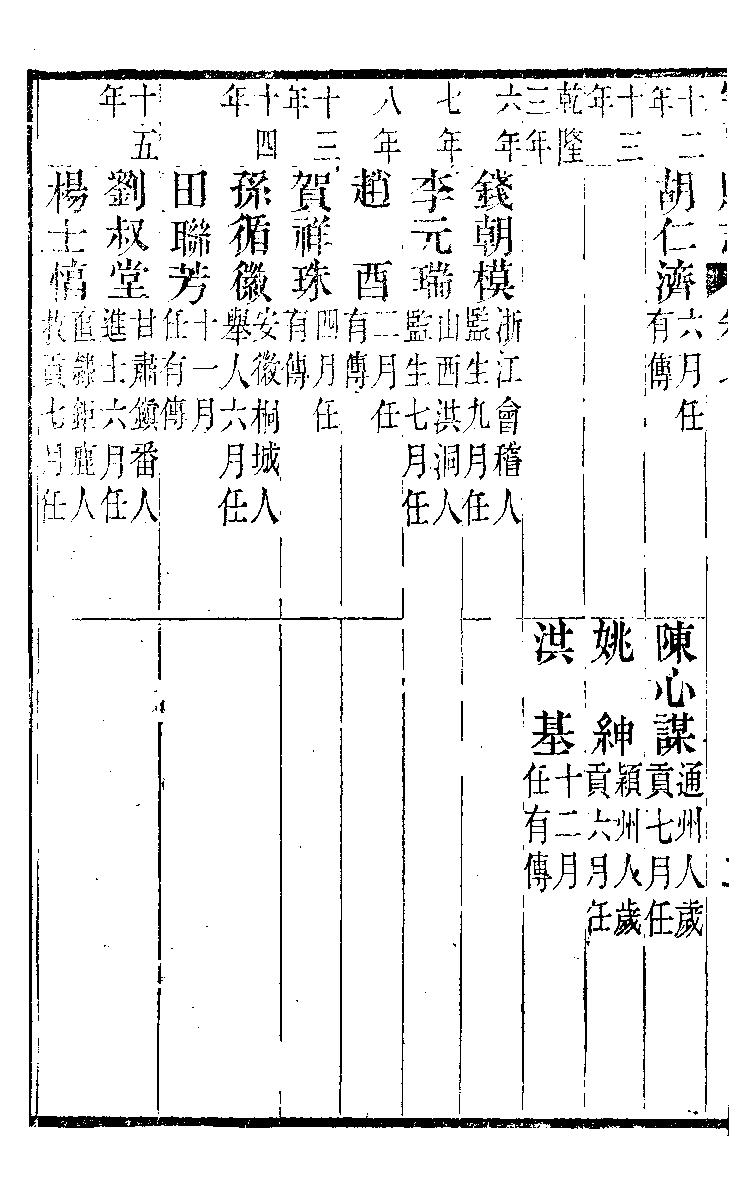 十二年 胡仁濟 六月任有傳 陳心謀 通州人歲貢七月任
十三年 姚紳 潁州人歲貢六月任
乾隆三年 洪基 十二月任有傳
六年 錢朝模 浙江會稽人監生九月任
七年 李元瑞 山西洪洞人監生七月任
八年 趙酉 二月任有傳
十三年 賀祥珠 四月任有傳
十四年 孫循徽 安徽桐城人舉人六月任
田聯芳 十一月任有傳
十五年 劉叔堂 甘肅鎮番人進士六月任
楊士 直隸鉅鹿人拔貢七月任